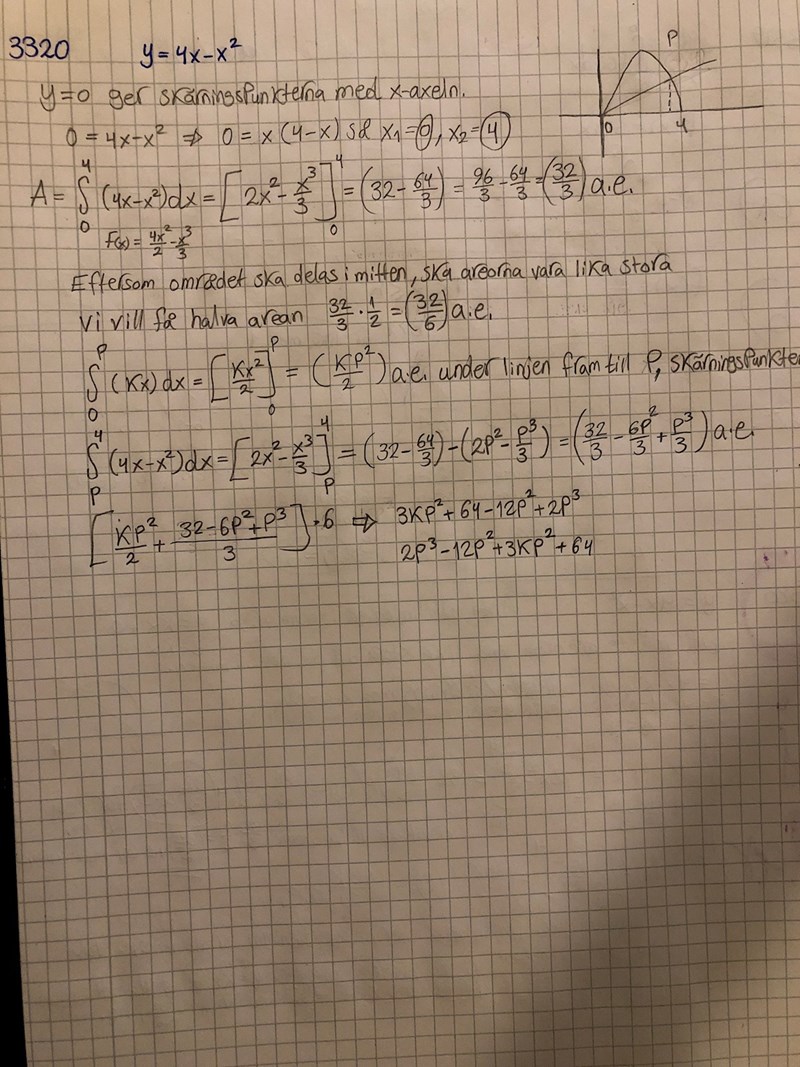 3320 y=4x-x²
P
0 4
y=0 ger skärningspunkterna med x-axeln.
0=4x-x² ⇒ 0=x(4-x) så x₁=0, x₂=4
A = ∫₀⁴ (4x-x²)dx = [2x² - x³/3]₀⁴ = (32 - 64/3) = 96/3 - 64/3 = (32/3) a.e.
F(x) = 4x²/2 - x³/3
Eftersom området ska delas i mitten, ska areorna vara lika stora
Vi vill få halva arean 32/3 · 1/2 = (32/6) a.e.
∫₀ᴾ (Kx)dx = [Kx²/2]₀ᴾ = (KP²/2) a.e. under linjen fram till P, skärningspunkte
∫ₚ⁴ (4x-x²)dx = [2x² - x³/3]ₚ⁴ = (32 - 64/3) - (2P² - P³/3) = (32/3 - 6P²/3 + P³/3) a.e.
[KP²/2 + (32-6P²+P³)/3] · 6 ⇒ 3KP²+64-12P²+2P³
2P³-12P²+3KP²+64